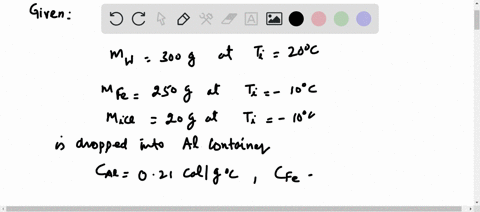 Given:
m_W = 300 g at T_i = 20°C
M_Fe = 250 g at T_i = - 10°C
M_ice = 20 g at T_i = - 10°C
is dropped into Al container
C_Al = 0.21 Cal/g°C , C_Fe -